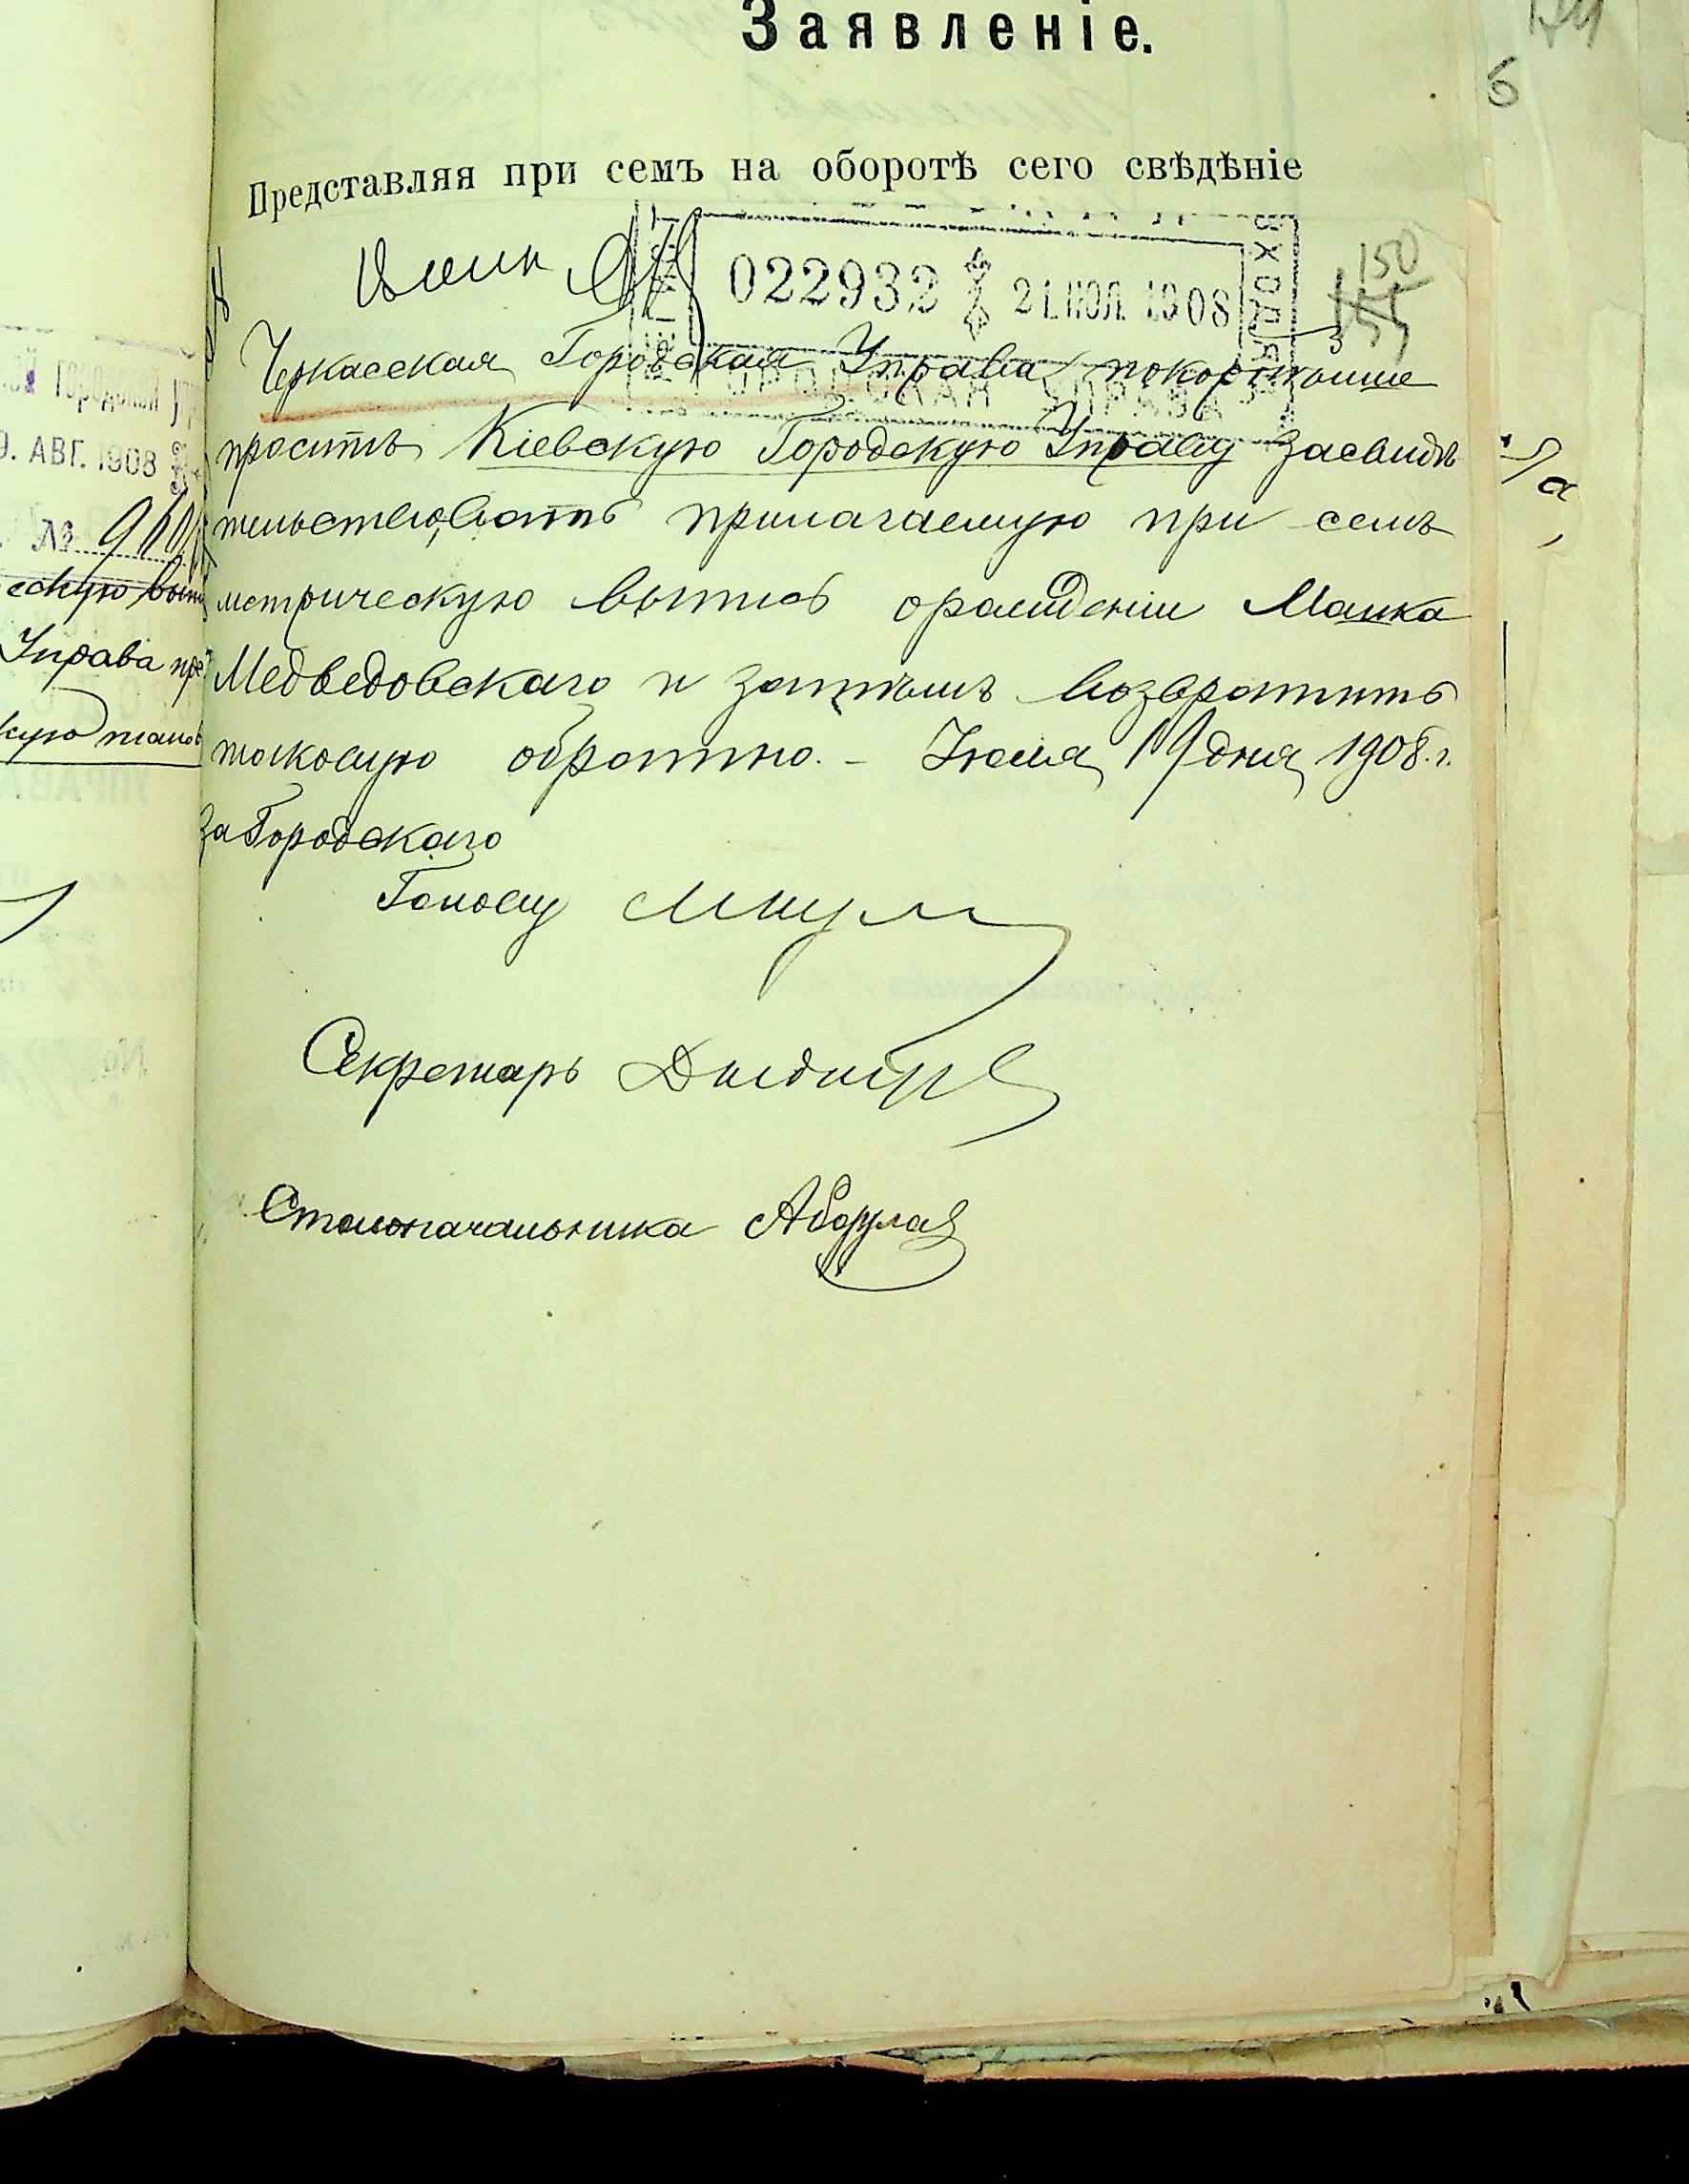 Заявленіе.
6
Представляя при семъ на оборотѣ сего свѣдѣніе
022932 21 ІЮЛ. 1908
ВХОДЯЩ
ГОРОДСКАЯ УПРАВА
150
Черкасская Городская Управа покорнѣйше
проситъ Кіевскую Городскую Управу засвидѣ
тельствовать прилагаемую при семъ
метрическую выпись о рожденіи Мошка
Медведовскаго и затѣмъ возвратить
таковую обратно. – Іюля 19 дня 1908 г.
За Городскаго
Голову
Секретарь
Столоначальника
ой Городской Уп
9. АВГ. 1908
№
ескую вып
Управа пре
кую